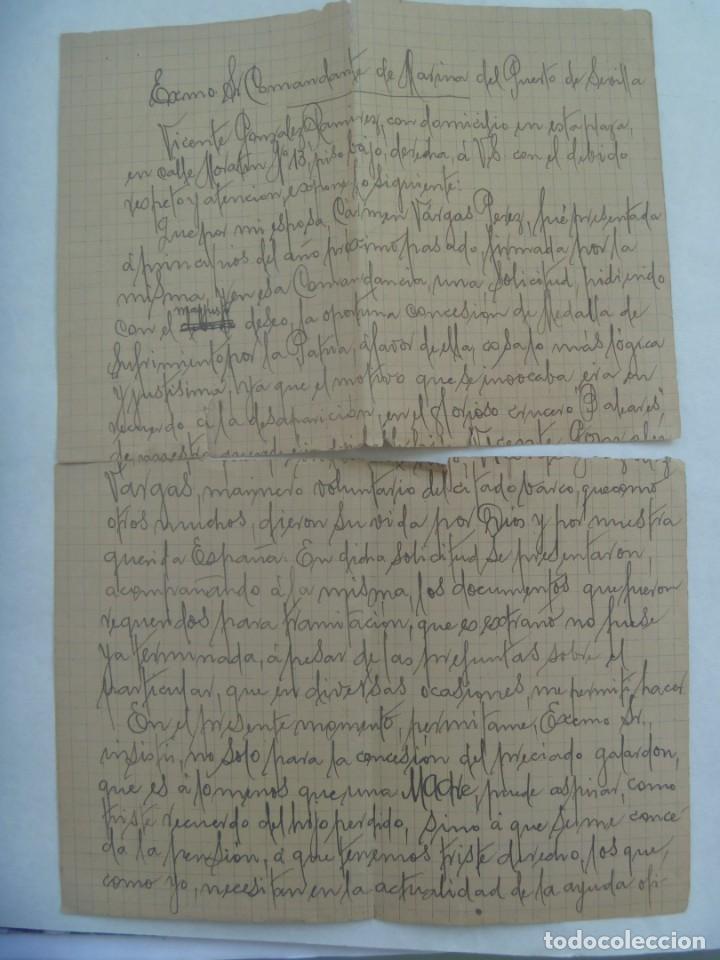 Exmo Sr Comandante de Marina del Puerto de Sevilla
Vicente Gonzalez Ramirez, con domicilio en esta plaza,
en calle Moratin Nº 13, piso bajo, derecha, á VS. con el debido
respeto y atencion, expone lo siguiente:
Que por mi esposa, Carmen Vargas Perez, fué presentada
á principios del año próximo pasado, firmada por la
misma, y en esa Comandancia, una solicitud pidiendo
con el deseo, la oportuna concesión de Medalla de
Sufrimiento por la Patria, á favor de ella, cosa lo más lógica
y justisima, ya que el motivo que se invocaba era en
recuerdo á la desaparición, en el glorioso crucero "Baleares"
de nuestro querido hijo Vicente Gonzalez
Vargas, marinero voluntario del citado barco, que como
otros muchos, dieron su vida por Dios y por nuestra
querida España. En dicha solicitud se presentaron,
acompañando á la misma, los documentos que fueron
requeridos para tramitación, que es extraño no fuese
ya terminada, á pesar de las preguntas sobre el
particular, que en diversas ocasiones, me permití hacer
En el presente momento, permitame, Excmo Sr.,
insistir, no solo para la concesión del preciado galardon,
que es á lo menos que una Madre, puede aspirar, como
triste recuerdo del hijo perdido, sino á que se me conce-
da la pensión, á que tenemos triste derecho, los que,
como yo, necesitan en la actualidad de la ayuda ofi-
todocoleccion.net